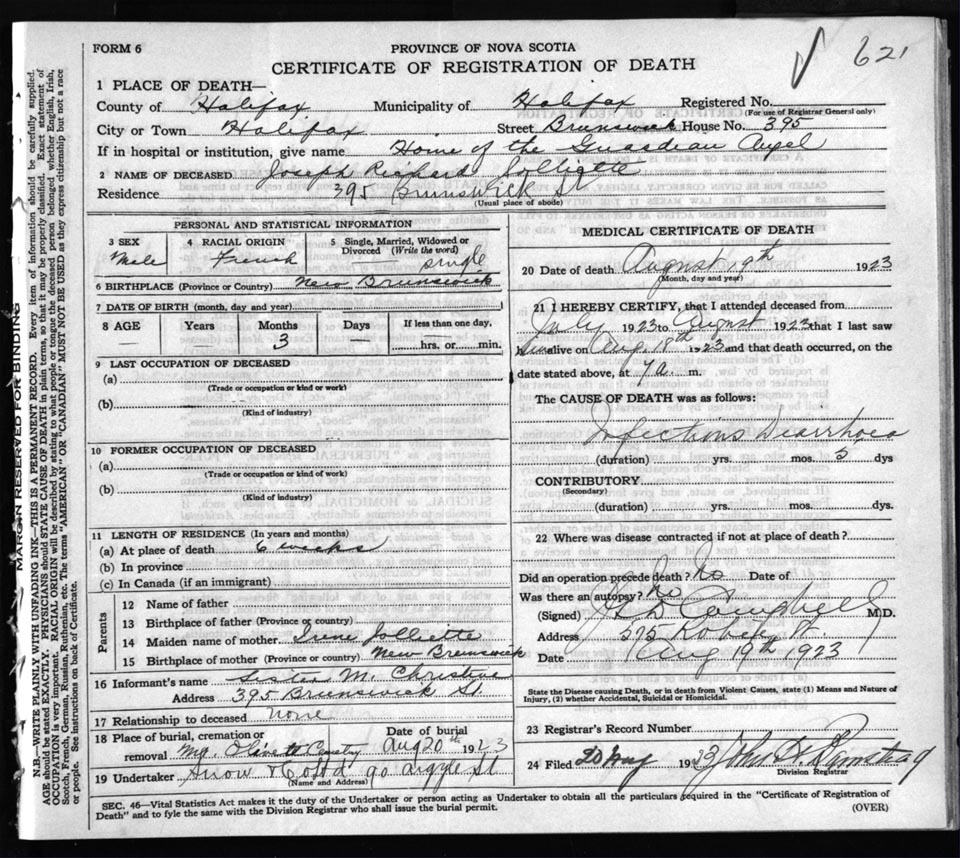 621
FORM 6
PROVINCE OF NOVA SCOTIA
CERTIFICATE OF REGISTRATION OF DEATH
1 PLACE OF DEATH—
County of Halifax Municipality of Halifax Registered No.
(For use of Registrar General only)
City or Town Halifax Street Brunswick House No. 395
If in hospital or institution, give name Home of the Guardian Angel
2 NAME OF DECEASED Joseph Richard
Residence 395 Brunswick St
(Usual place of abode)
PERSONAL AND STATISTICAL INFORMATION
3 SEX Male
4 RACIAL ORIGIN French
5 Single, Married, Widowed or Divorced (Write the word) single
6 BIRTHPLACE (Province or Country) New Brunswick
7 DATE OF BIRTH (month, day and year)
8 AGE Years Months Days If less than one day,
— 3 — hrs. or min.
9 LAST OCCUPATION OF DECEASED
(a)
(Trade or occupation or kind of work)
(b)
(Kind of industry)
10 FORMER OCCUPATION OF DECEASED
(a)
(Trade or occupation or kind of work)
(b)
(Kind of industry)
11 LENGTH OF RESIDENCE (In years and months)
(a) At place of death 6 weeks
(b) In province
(c) In Canada (if an immigrant)
Parents
12 Name of father
13 Birthplace of father (Province or country)
14 Maiden name of mother Irene Jolliette
15 Birthplace of mother (Province or country) New Brunswick
16 Informant's name Sister M. Christine
Address 395 Brunswick St.
17 Relationship to deceased none
18 Place of burial, cremation or removal Mt. Olivet Cemetery Date of burial Aug 20th 1923
19 Undertaker Snow & Co Ltd 90 Argyle St
(Name and Address)
MEDICAL CERTIFICATE OF DEATH
20 Date of death August 19th 1923
(Month, day and year)
21 I HEREBY CERTIFY, that I attended deceased from
July 1923 to August 1923 that I last saw
him alive on Aug 18th 1923 and that death occurred, on the
date stated above, at 7 a. m.
The CAUSE OF DEATH was as follows:
Infectious Diarrhoea
(duration) yrs. mos. 5 dys
CONTRIBUTORY
(Secondary)
(duration) yrs. mos. dys.
22 Where was disease contracted if not at place of death?
Did an operation precede death? No Date of
Was there an autopsy? No
(Signed) Campbell M.D.
Address Robie St.
Date Aug 19th 1923
State the Disease causing Death, or in death from Violent Causes, state (1) Means and Nature of
Injury, (2) whether Accidental, Suicidal or Homicidal.
23 Registrar's Record Number
24 Filed 20 Aug 1923 John
Division Registrar
SEC. 46—Vital Statistics Act makes it the duty of the Undertaker or person acting as Undertaker to obtain all the particulars required in the "Certificate of Registration of
Death" and to fyle the same with the Division Registrar who shall issue the burial permit.
(OVER)
MARGIN RESERVED FOR BINDING
N.B.—WRITE PLAINLY WITH UNFADING INK—THIS IS A PERMANENT RECORD. Every item of information should be carefully supplied.
AGE should be stated EXACTLY. PHYSICIANS should STATE CAUSE OF DEATH in plain terms, so that it may be properly classified. Exact statement of
OCCUPATION is very important. RACIAL ORIGIN will be described by stating to what people or tongue the deceased person belonged whether English, Irish,
Scotch, French, German, Russian, Ruthenian, etc. The terms "AMERICAN" OR "CANADIAN" MUST NOT BE USED as they express citizenship but not a race
or people. See instructions on back of Certificate.